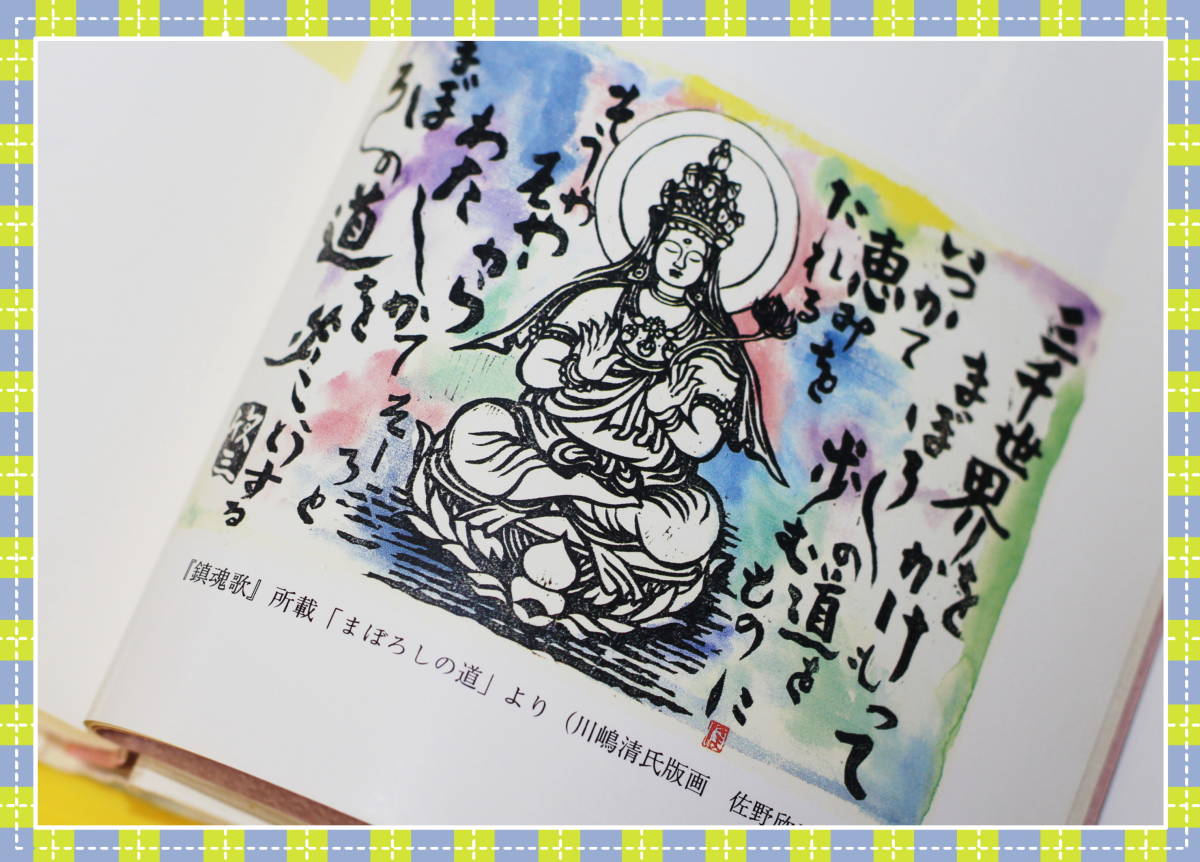 三千世界を
かけもって
いつかて
まぼろしの道を
歩むものに
恵みを
たれる
そうや
そやから
あたしかて そーろと
まぼろしの道を
『鎮魂歌』所載「まぼろしの道」より（川嶋清氏版画　佐野欣